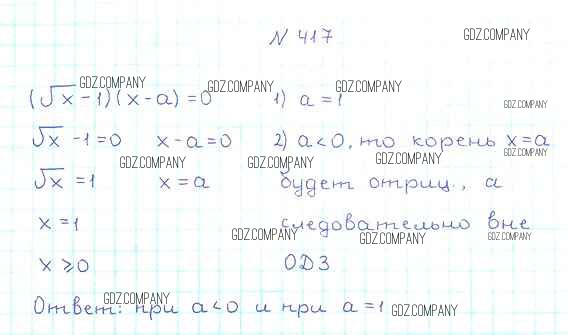 N 417
GDZ.COMPANY
GDZ.COMPANY GDZ.COMPANY GDZ.COMPANY
(√x - 1)(x - a) = 0 1) a = 1
GDZ.COMPANY
√x - 1 = 0 x - a = 0 2) a < 0, то корень x = a
GDZ.COMPANY GDZ.COMPANY GDZ.COMPANY GDZ.COMPANY
√x = 1 x = a будет отриц., а
x = 1 следовательно вне
GDZ.COMPANY GDZ.COMPANY GDZ.COMPANY
x ⩾ 0 ОДЗ
GDZ.COMPANY GDZ.COMPANY
Ответ: при a < 0 и при a = 1